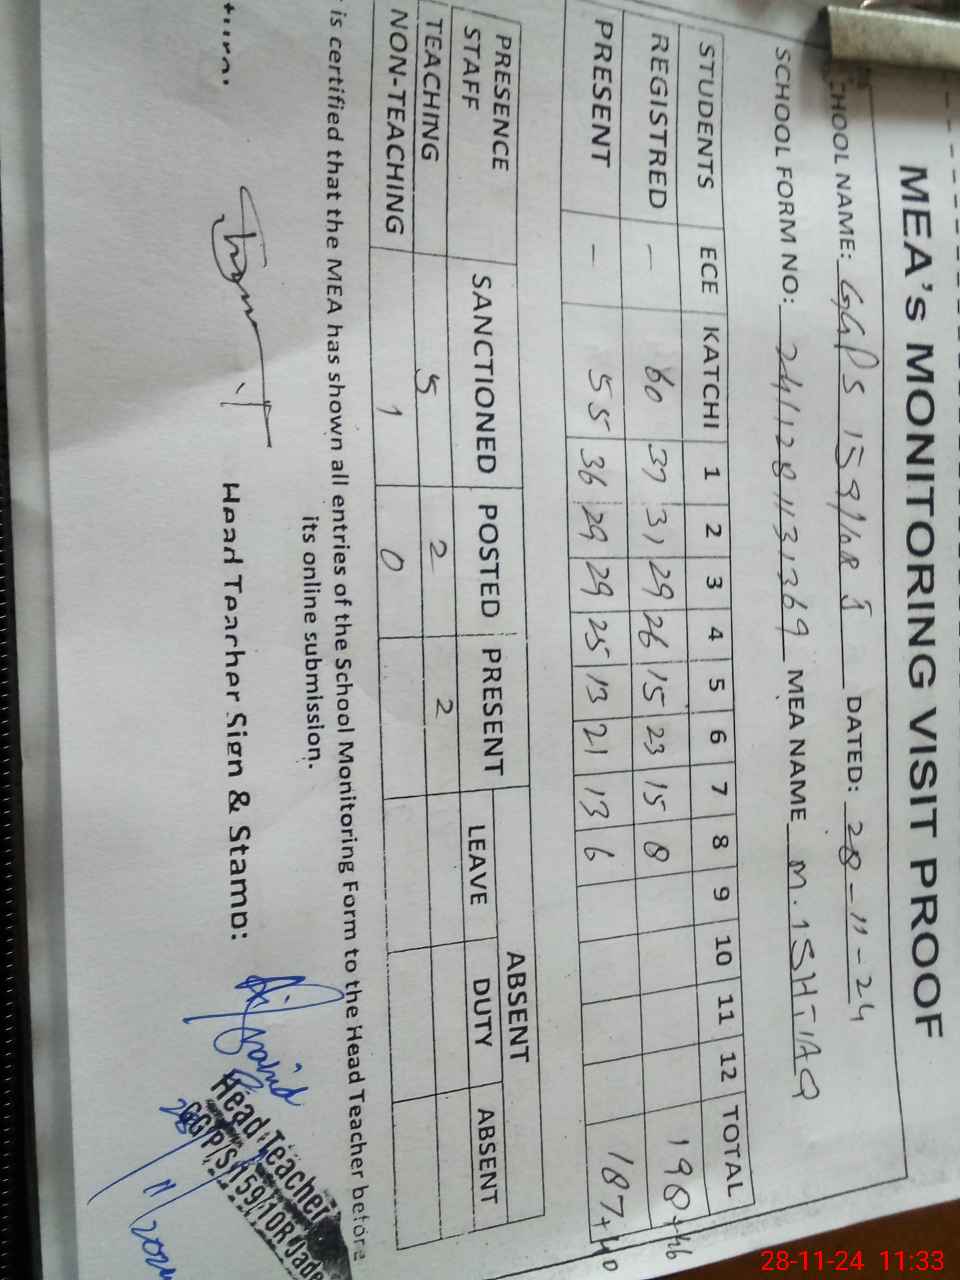 MEA's MONITORING VISIT PROOF
CHOOL NAME: GGPS 159/10R J DATED: 28-11-24
SCHOOL FORM NO: 2411281131369 MEA NAME M. ISHTIAQ
STUDENTS ECE KATCHI 1 2 3 4 5 6 7 8 9 10 11 12 TOTAL
REGISTRED – 60 37 31 29 26 15 23 15 8 198+46
PRESENT – 55 36 29 29 25 13 21 13 6 187+40
PRESENCE STAFF SANCTIONED POSTED PRESENT ABSENT
LEAVE DUTY ABSENT
TEACHING 5 2 2
NON-TEACHING 1 0
is certified that the MEA has shown all entries of the School Monitoring Form to the Head Teacher before
its online submission.
Head Teacher Sign & Stamp:
Head Teacher
GGP/S/159/10R Jade
28/11/2024
28-11-24 11:33